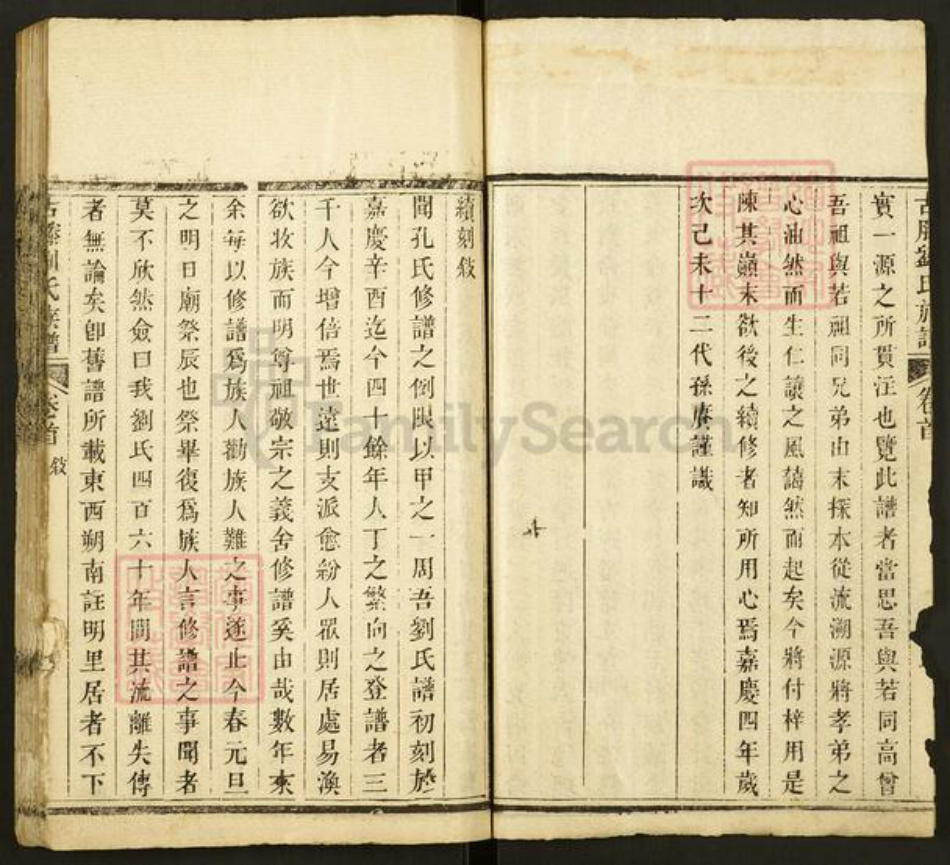 古滕劉氏族譜 卷首
實一源之所貫注也覽此譜者當思吾與若同高曾
吾祖與若祖同兄弟由末探本從流溯源將孝弟之
心油然而生仁讓之風藹然而起矣今將付梓用是
陳其巔末欲後之續修者知所用心焉嘉慶四年歲
次己未十二代孫賡謹識
續刻敍
聞孔氏修譜之例限以甲之一周吾劉氏譜初刻於
嘉慶辛酉迄今四十餘年人丁之繁向之登譜者三
千人今增倍焉世遠則支派愈紛人眾則居處易渙
欲收族而明尊祖敬宗之義舍修譜奚由哉數年來
余每以修譜爲族人勸族人難之事遂止今春元旦
之明日廟祭辰也祭畢復爲族人言修譜之事聞者
莫不欣然僉曰我劉氏四百六十年間其流離失傳
者無論矣卽舊譜所載東西朔南註明里居者不下
古滕劉氏族譜 卷首 敍
FamilySearch